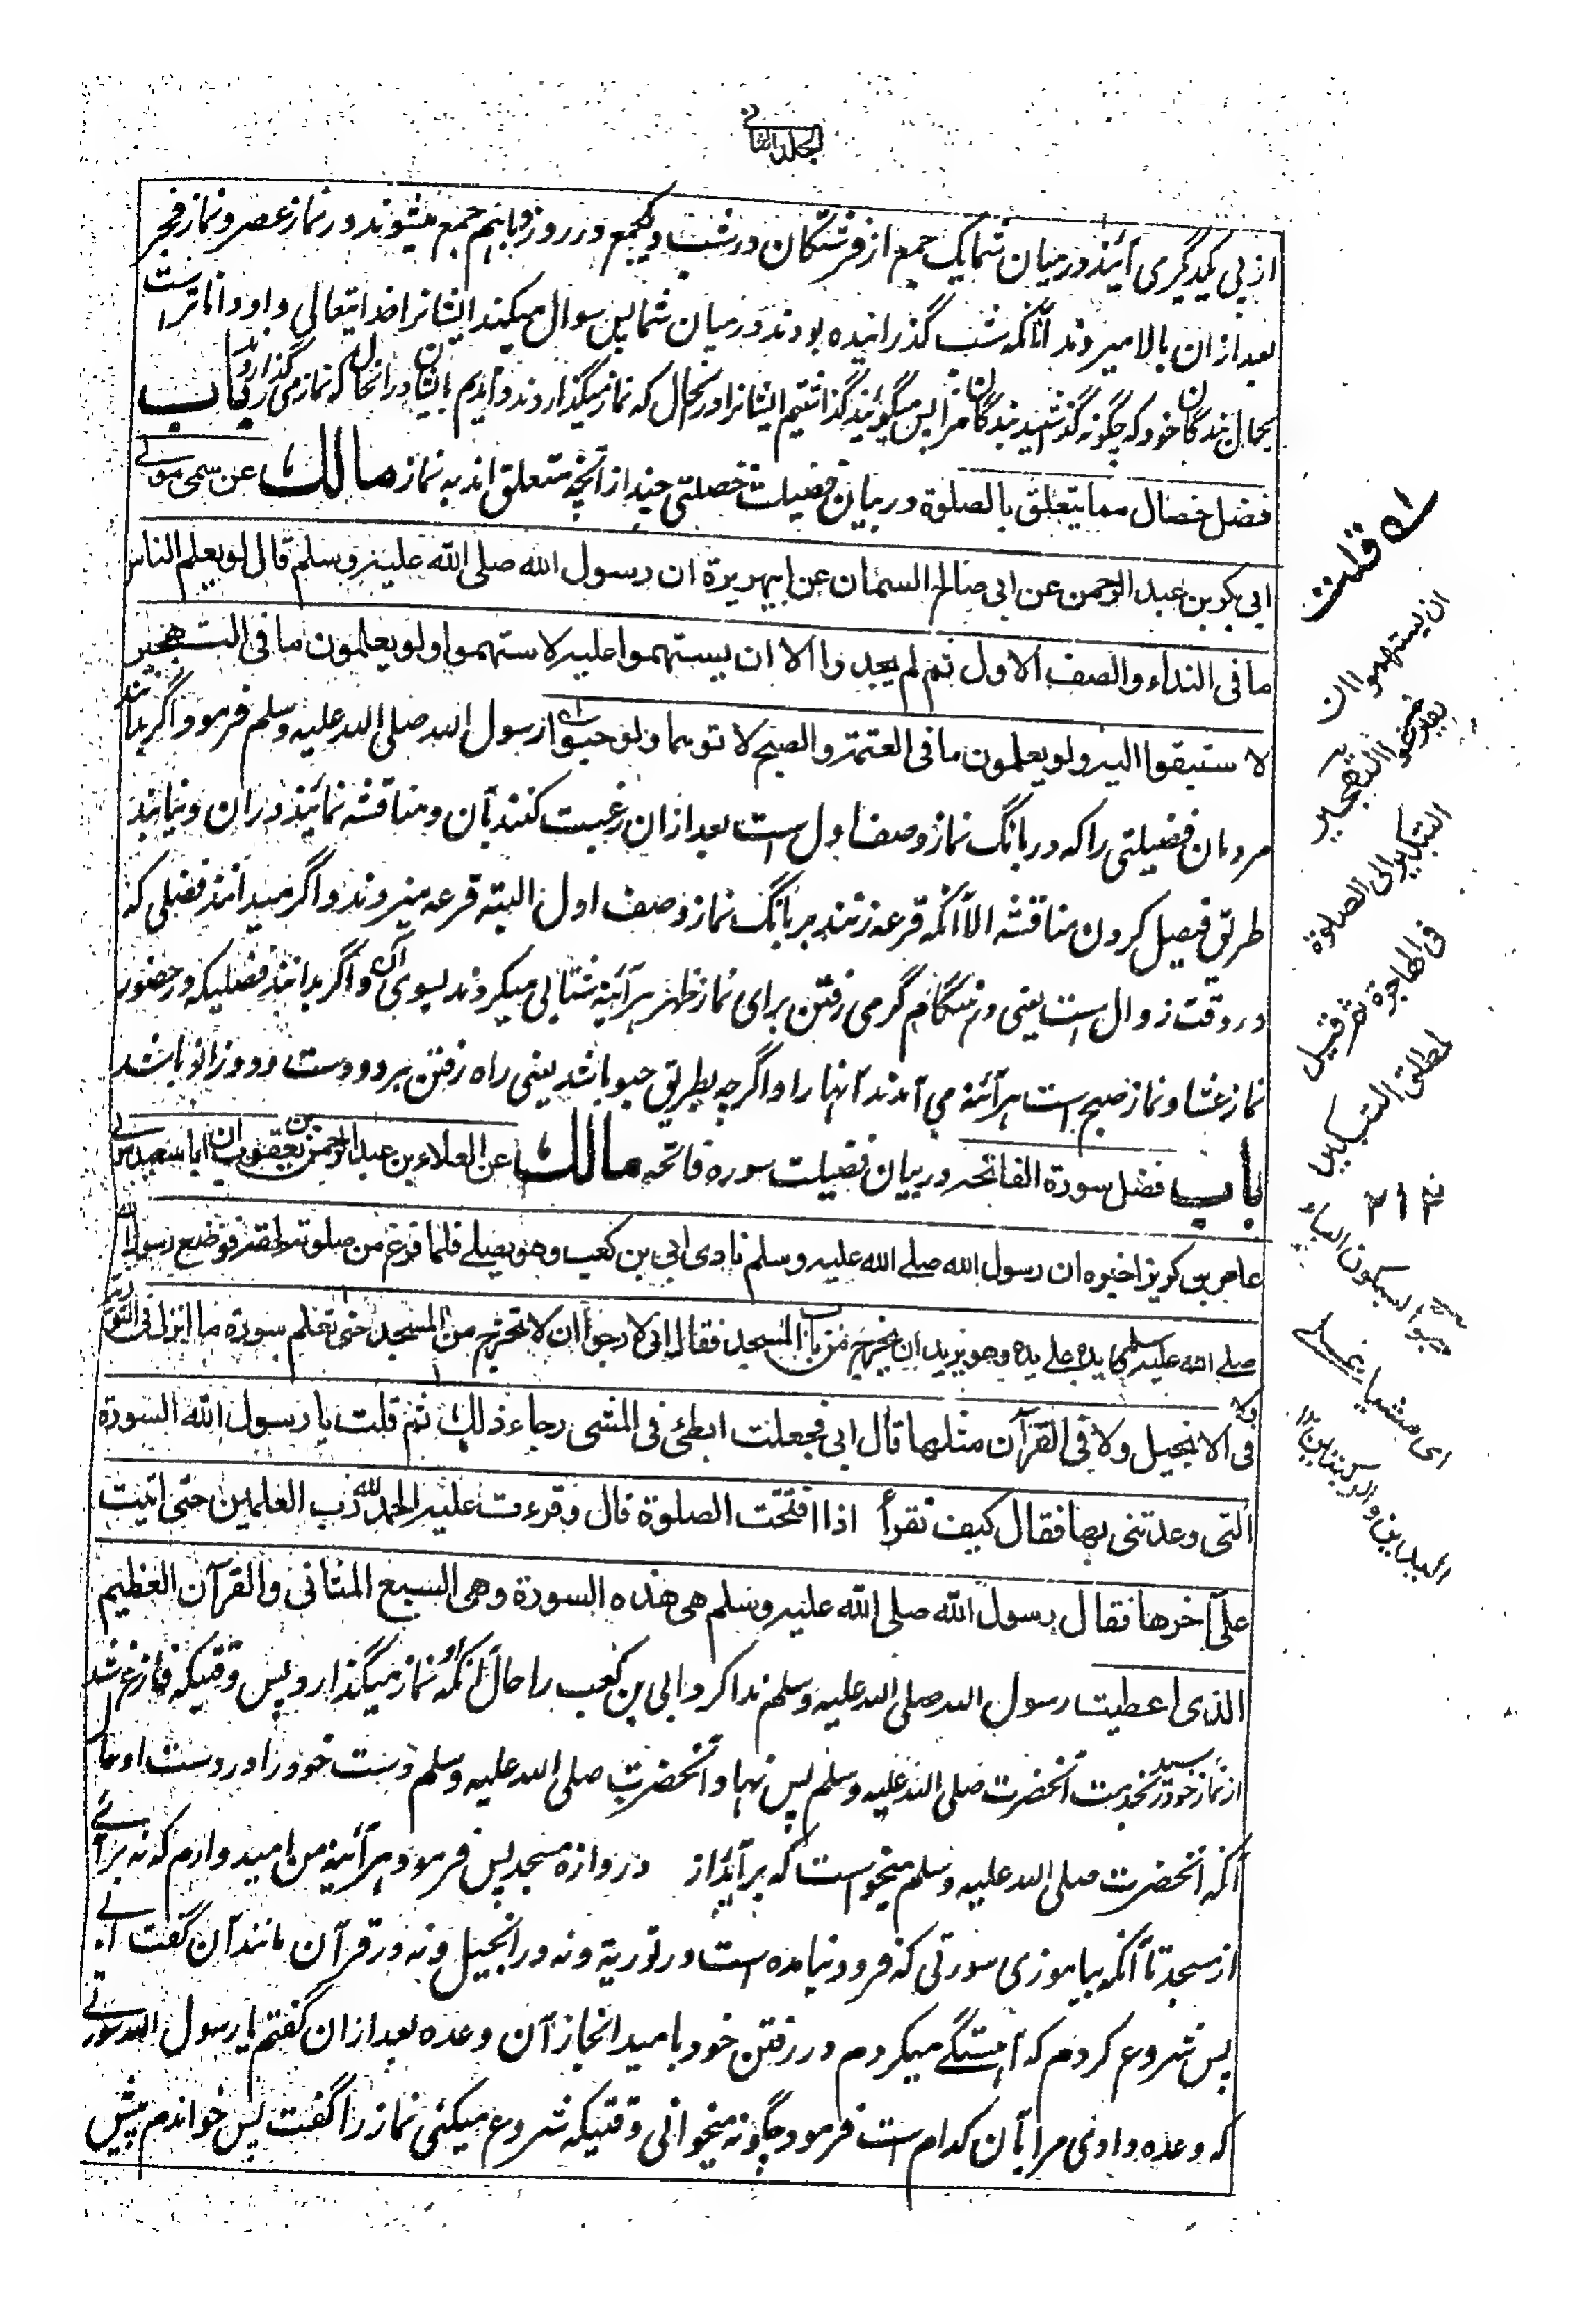 الجلد الثانی
از پی یکدیگر می آیند در میان شما یک جمع از فرشتگان در شب و یکجمع در روز و باهم جمع میشوند در نماز عصر و نماز فجر
بعد ازان بالا میروند آنانکه شب گذرانیده بودند در میان شما پس سوال میکند ایشانرا خدایتعالی و او داناتر است
بحال بندگان خود که چگونه گذاشتید بندگان مرا پس میگویند گذاشتیم ایشانرا در انحال که نماز میگذاردند و آمدیم ایشان را در انحال که نماز می گذاردند باب
فضل خصال مما یتعلق بالصلوة در بیان فضیلت خصلتی چند از آنچه متعلق اند به نماز مالك عن سمی مولی
ابی بکر بن عبد الرحمن عن ابی صالح السمان عن ابیهریرة ان رسول الله صلی الله علیه وسلم قال لو یعلم الناس
ما فی النداء والصف الاول ثم لم یجدوا الا ان یستهموا علیه لاستهموا ولو یعلمون ما فی التهجیر
لاستبقوا الیه ولو یعلمون ما فی العتمة والصبح لاتوهما ولو حبوا رسول الله صلی الله علیه وسلم فرمود اگر بدانند
مردمان فضیلتی را که در بانگ نماز و صف اول است بعد ازان رغبت کنند بآن و مناقشه نمایند دران و نیابند
طریق فیصل کردن مناقشه الا آنکه قرعه زنند بر بانگ نماز و صف اول البته قرعه میزدند و اگر میدانند فضلی که
در وقت زوال است یعنی در هنگام گرمی رفتن برای نماز ظهر هر آئینه شتابی میکردند بسوی آن و اگر بدانند فضلیکه در حضور
نماز عشا و نماز صبح است هر آئنه می آمدند آنها را و اگرچه بطریق حبو باشد یعنی راه رفتن بر دو دست و دو زانو باشد
باب فضل سورة الفاتحه در بیان فضیلت سوره فاتحه مالك عن العلاء بن عبد الرحمن بن یعقوب ان ابا سعید مولی
عامر بن کریز اخبره ان رسول الله صلی الله علیه وسلم نادی ابی بن کعب وهو یصلی فلما فرغ من صلوته لحقه فوضع رسول الله
صلی الله علیه وسلم یده علی یده وهو یرید ان یخرج من باب المسجد فقال انی لارجو ان لا تخرج من المسجد حتی تعلم سورة ما انزل فی التوریة
ولا فی الانجیل ولا فی القرآن مثلها قال ابی فجعلت ابطئ فی المشی رجاء ذلك ثم قلت یا رسول الله السورة
التی وعدتنی بها فقال کیف تقرأ اذا افتتحت الصلوة قال وقرءت علیه الحمد لله رب العلمین حتی اتیت
علی آخرها فقال رسول الله صلی الله علیه وسلم هی هذه السورة وهی السبع المثانی والقرآن العظیم
الذی اعطیت رسول الله صلی الله علیه وسلم ندا کرد ابی بن کعب را حال آنکه او نماز میگذارد پس وقتیکه فارغ شد
از نماز خود رسید بخدمت آنحضرت صلی الله علیه وسلم پس نهاد آنحضرت صلی الله علیه وسلم دست خود را در دست او حال
آنکه آنحضرت صلی الله علیه وسلم میخواست که بر آید از دروازه مسجد پس فرمود هر آئینه من امید وارم که نه برآئی
از مسجد تا آنکه بیاموزی سورتی که فرود نیامده است در توریة و نه در انجیل و نه در قرآن مانند آن گفت ابی
پس شروع کردم که آهستگی میکردم در رفتن خود بامید انجاز آن وعده بعد ازان گفتم یا رسول الله سورتی
که وعده دادی مرا بآن کدام است فرمود چگونه میخوانی وقتیکه شروع میکنی نماز را گفت پس خواندم پیش
قلت
ان یستهموا ان
یقترعوا التهجیر
التبکیر الی الصلوة
فی الهاجرة ثم قیل
لمطلق التبکیر
۳۱۲
حبوا بسکون الباء
ای مشیا علی
الیدین والرکبتین